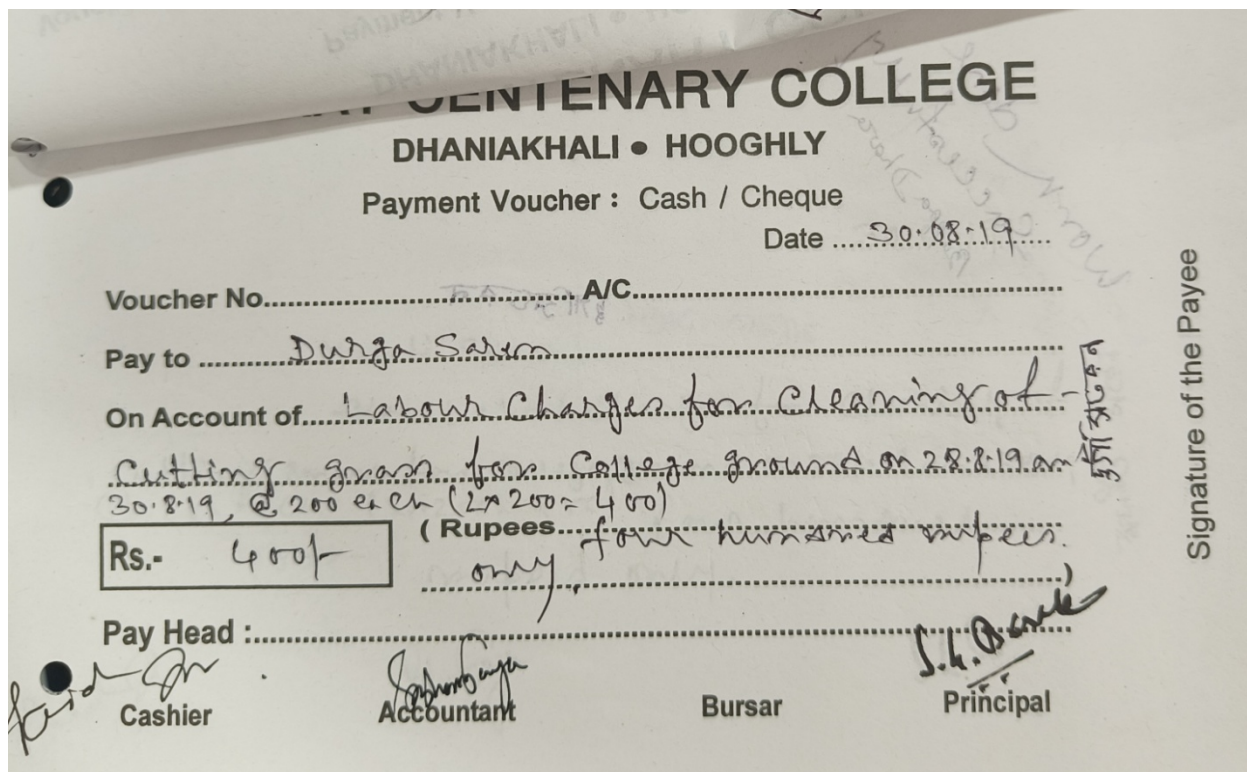 CENTENARY COLLEGE
DHANIAKHALI • HOOGHLY
Payment Voucher : Cash / Cheque
Date ....30.08.19....
Voucher No.................... A/C....................
Pay to ....Durga Saren....
On Account of....Labour Charges for Cleaning of
Cutting grass for College ground on 28.8.19 an
30.8.19, @ 200 each (2x200= 400)
Rs.- 400/- ( Rupees....four hundred rupees.
only.....)
Pay Head :....................
S.K.
Paid
Cashier Accountant Bursar Principal
Signature of the Payee